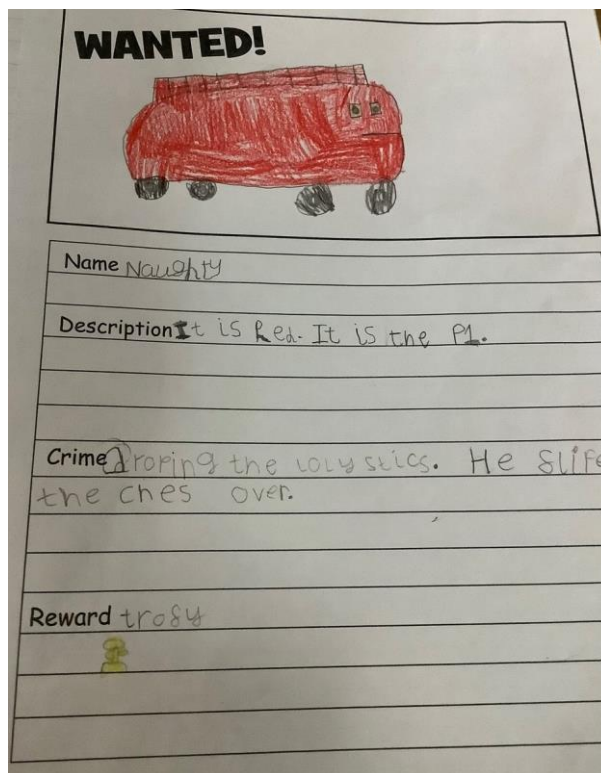 WANTED!
Name Naughty
Description It is Red. It is the P1.
Crime droping the lolystics. He slife
the ches over.
Reward trofy